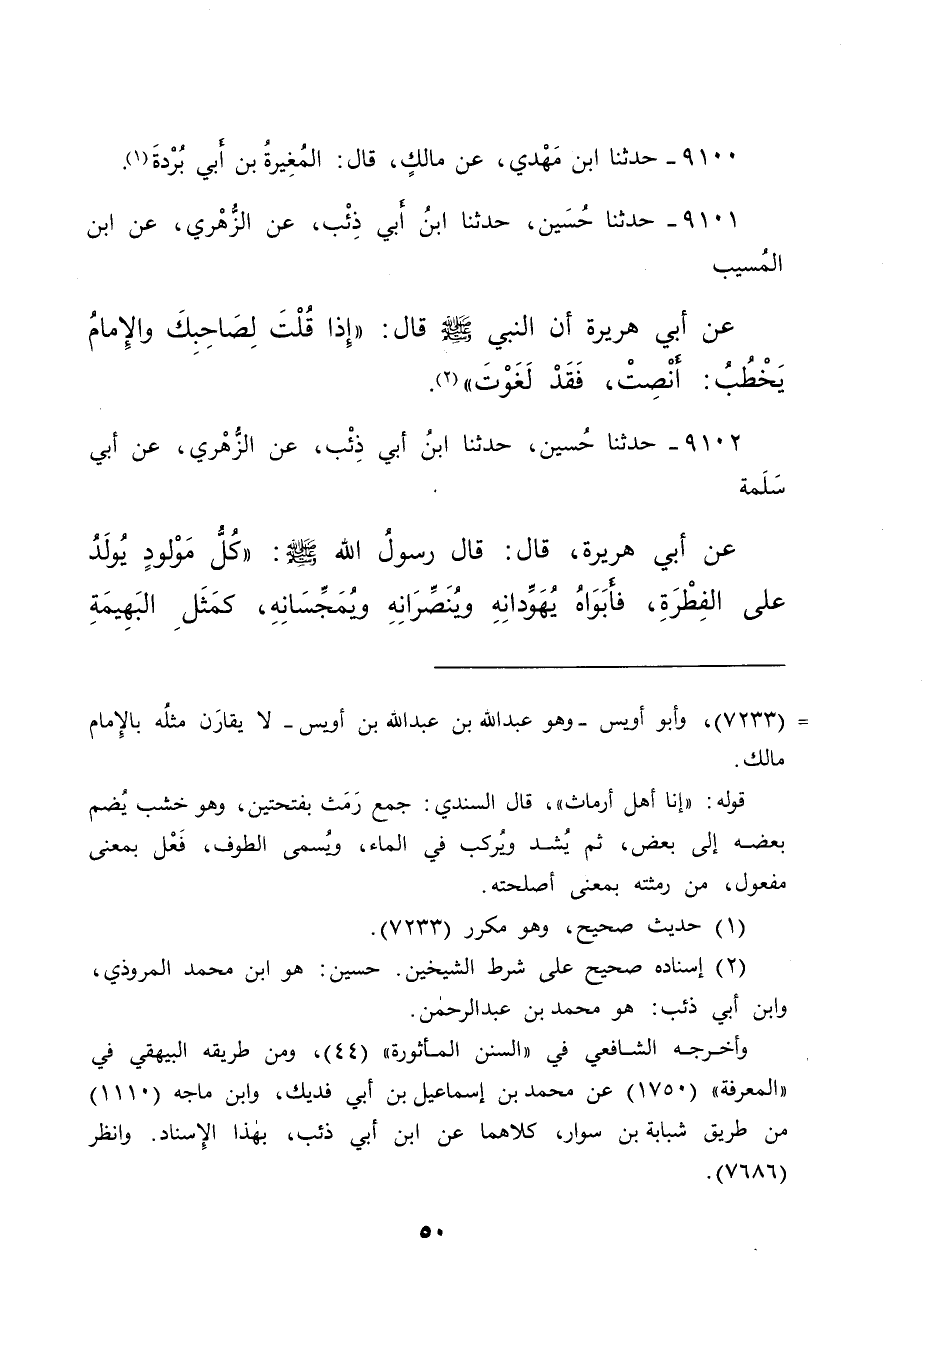 ٩١٠٠ـ حدثنا ابن مَهْدي، عن مالكٍ، قال: المُغِيرةُ بن أَبي بُرْدةَ(١).
٩١٠١ـ حدثنا حُسَين، حدثنا ابنُ أَبي ذِئْب، عن الزُّهْري، عن ابن
المُسيب
عن أبي هريرة أن النبي ﷺ قال: «إِذا قُلْتَ لِصَاحِبِكَ والإِمامُ
يَخْطُبُ: أَنْصِتْ، فَقَدْ لَغَوْتَ»(٢).
٩١٠٢ـ حدثنا حُسين، حدثنا ابنُ أبي ذِئْب، عن الزُّهْري، عن أبي
سَلَمة
عن أبي هريرة، قال: قال رسولُ الله ﷺ: «كُلُّ مَوْلودٍ يُولَدُ
على الفِطْرَةِ، فأَبَوَاهُ يُهَوِّدانِهِ ويُنَصِّرَانِهِ ويُمَجِّسَانِهِ، كمَثَلِ البَهِيمَةِ
= (٧٢٣٣)، وأبو أويس ـ وهو عبدالله بن عبدالله بن أويس ـ لا يقارَن مثلُه بالإمام
مالك.
قوله: «إنا أهل أرماث»، قال السندي: جمع رَمَث بفتحتين، وهو خشب يُضم
بعضه إلى بعض، ثم يُشد ويُركب في الماء، ويُسمى الطوف، فَعْل بمعنى
مفعول، من رمثته بمعنى أصلحته.
(١) حديث صحيح، وهو مكرر (٧٢٣٣).
(٢) إسناده صحيح على شرط الشيخين. حسين: هو ابن محمد المروذي،
وابن أبي ذئب: هو محمد بن عبدالرحمٰن.
وأخرجه الشافعي في «السنن المأثورة» (٤٤)، ومن طريقه البيهقي في
«المعرفة» (١٧٥٠) عن محمد بن إسماعيل بن أبي فديك، وابن ماجه (١١١٠)
من طريق شبابة بن سوار، كلاهما عن ابن أبي ذئب، بهٰذا الإسناد. وانظر
(٧٦٨٦).
٥٠